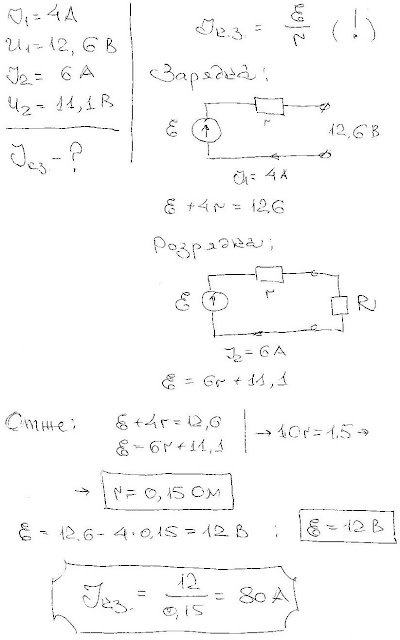 J₁ = 4A
U₁ = 12,6 В
J₂ = 6 А
U₂ = 11,1 В
Jкз - ?
Jк.з. = ℰ/r (!)
Зарядка:
ℰ
r
12,6 В
J₁ = 4A
ℰ + 4r = 12,6
Розрядка:
ℰ
r
R
J₂ = 6A
ℰ = 6r + 11,1
Отже: ℰ + 4r = 12,6
ℰ = 6r + 11,1
→ 10r = 1,5 →
→ r = 0,15 Ом
ℰ = 12,6 - 4·0,15 = 12 В ; ℰ = 12 В
Jкз. = 12/0,15 = 80 А